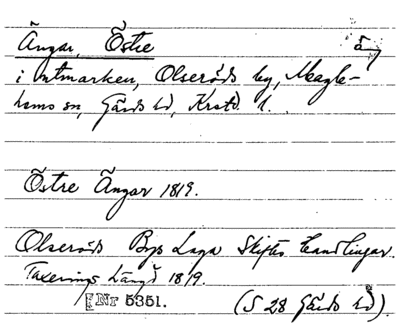 Ängar, Östre äng
i utmarken, Olseröds by, Maglehems sn, Gärds hd, Krstd l.
Östre Ängar 1819.
Olseröds Bys Laga Skiftes Handlingar.
Taxerings Längd 1819.
Nr 5351. (S 28 Gärds hd).